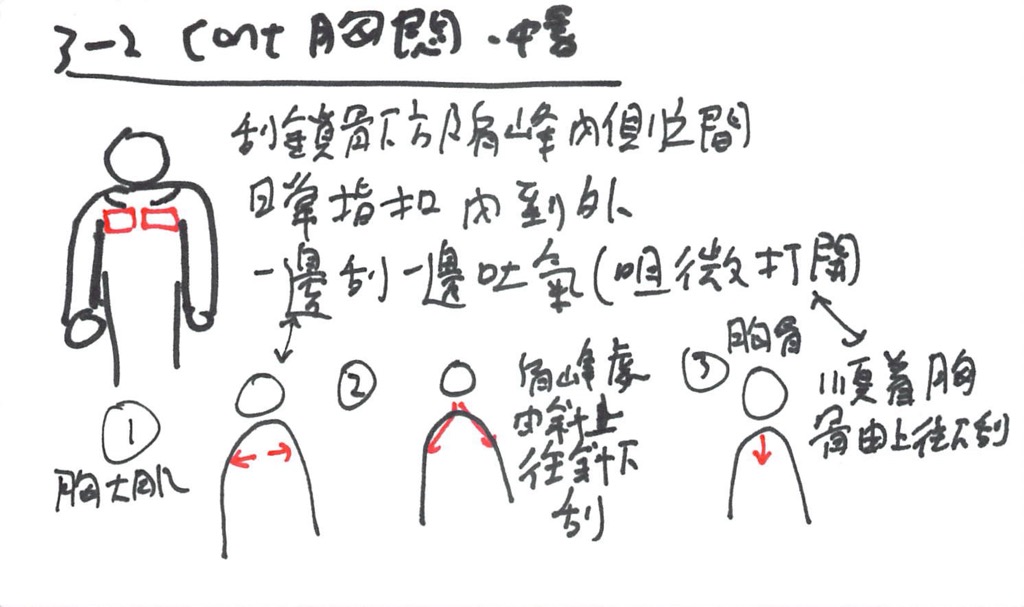 3-2 Cont 胸悶.中暑
刮鎖骨下方及肩峰內側之間
日常指扣內到外
一邊刮一邊吐氣(咀微打開
①
胸大肌
②
肩峰處
由斜上
往斜下
刮
③
胸骨
順著胸
骨由上往下刮